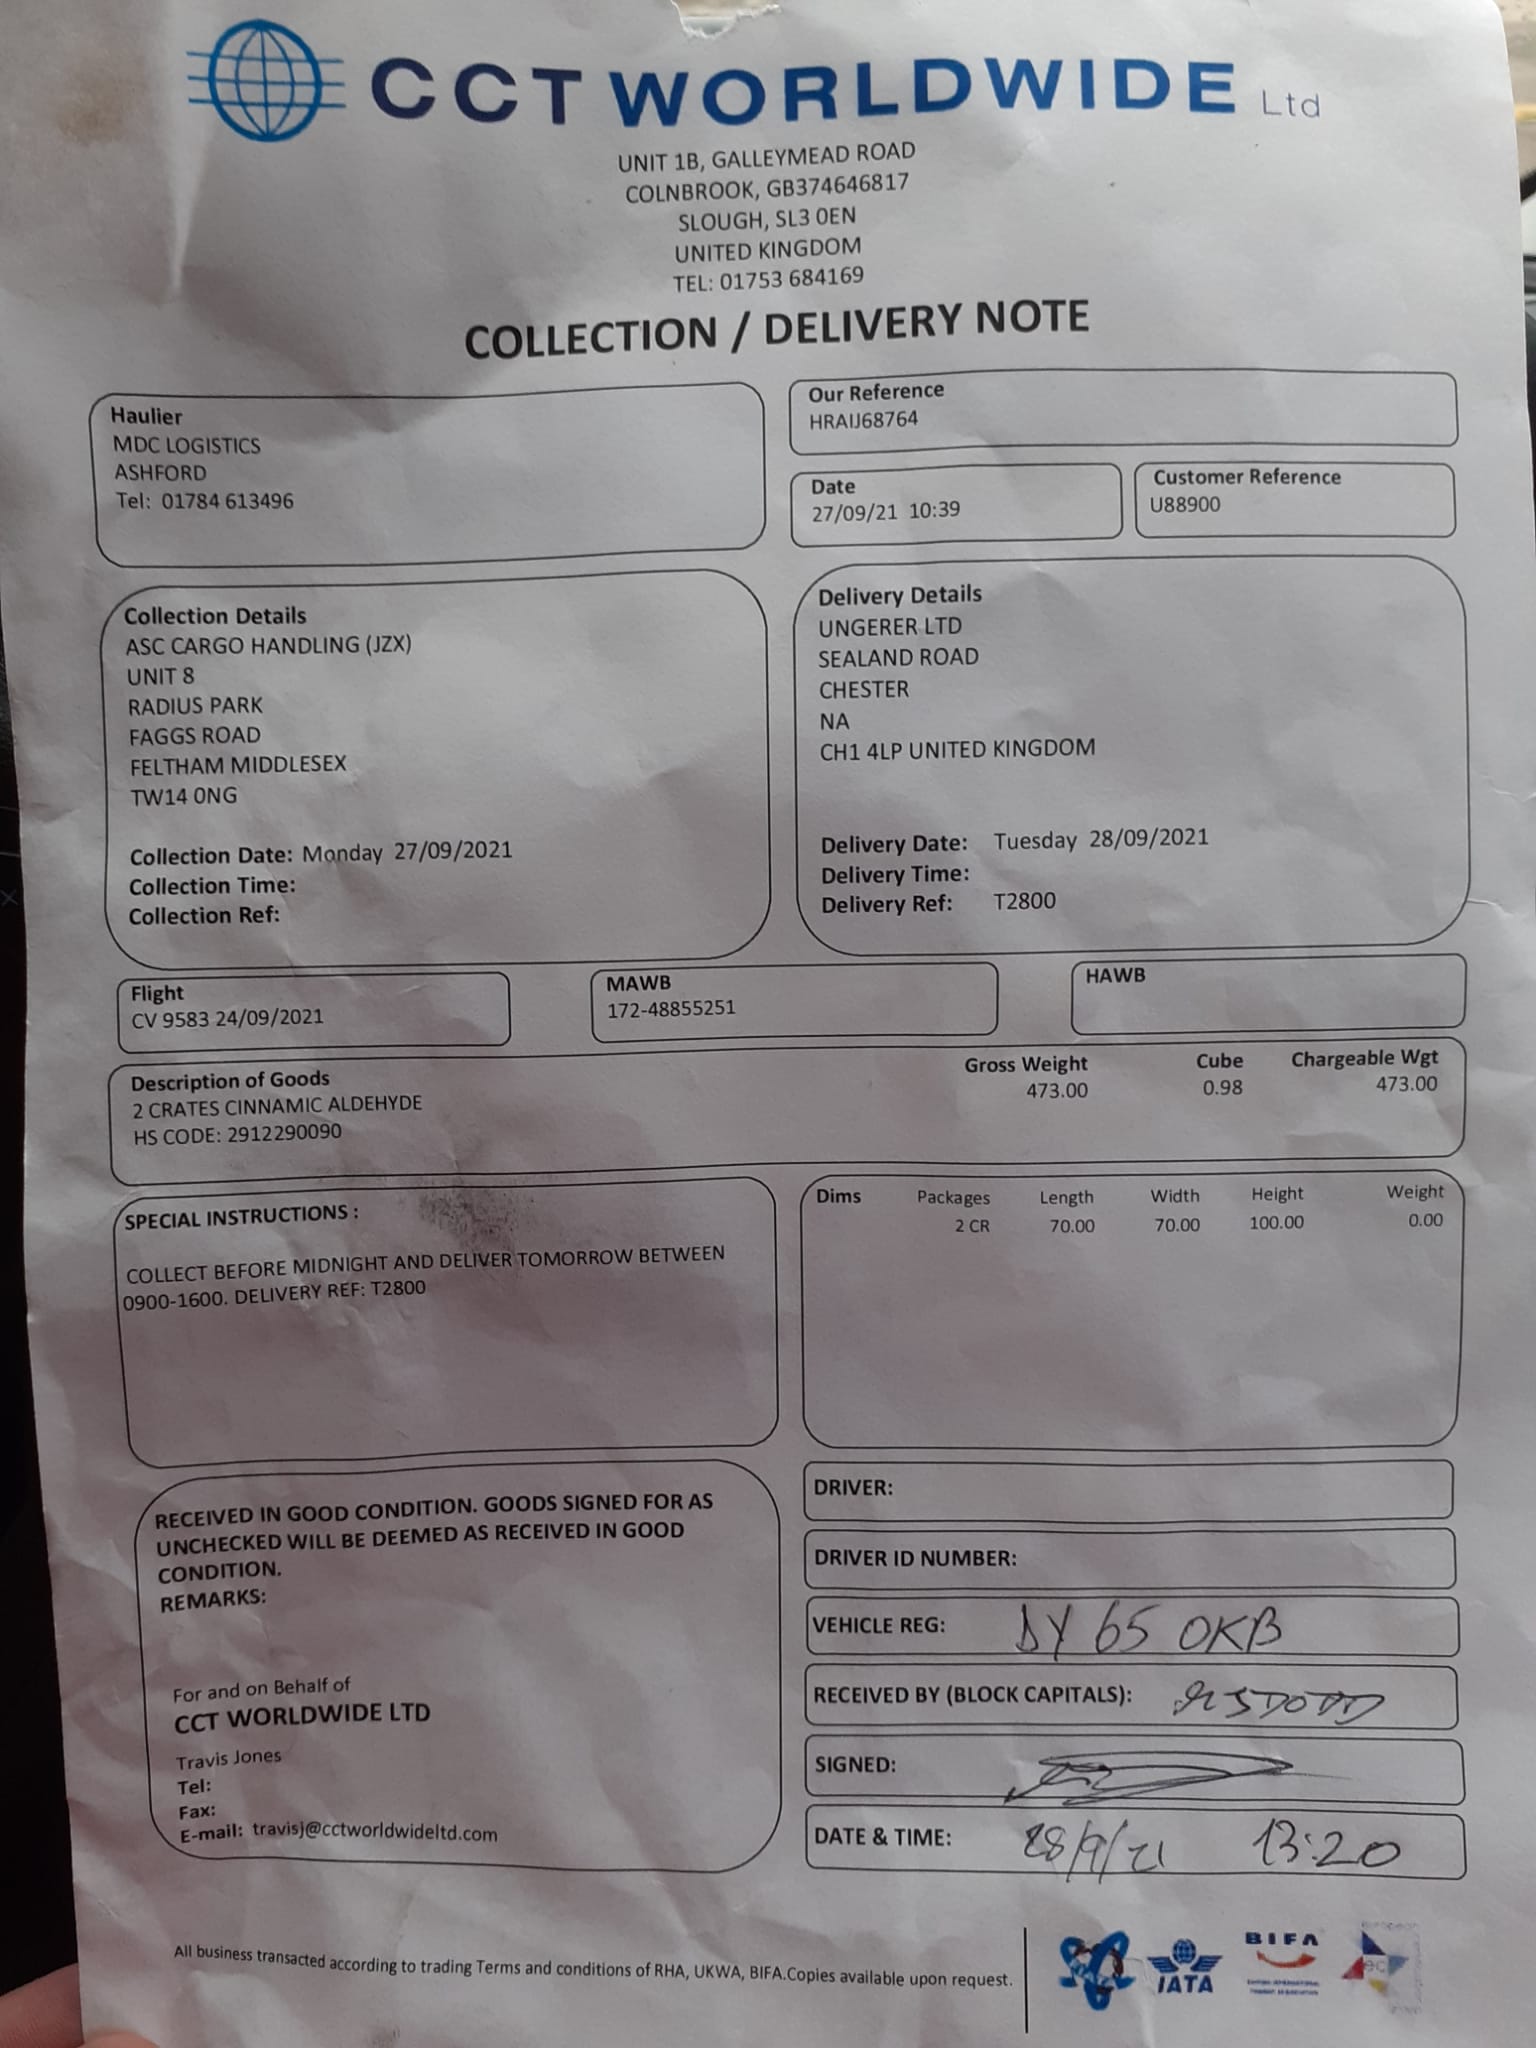 CCT WORLDWIDE Ltd
UNIT 1B, GALLEYMEAD ROAD
COLNBROOK, GB374646817
SLOUGH, SL3 0EN
UNITED KINGDOM
TEL: 01753 684169
COLLECTION / DELIVERY NOTE
Haulier
MDC LOGISTICS
ASHFORD
Tel: 01784 613496
Our Reference
HRAIJ68764
Date
27/09/21 10:39
Customer Reference
U88900
Collection Details
ASC CARGO HANDLING (JZX)
UNIT 8
RADIUS PARK
FAGGS ROAD
FELTHAM MIDDLESEX
TW14 0NG
Collection Date: Monday 27/09/2021
Collection Time:
Collection Ref:
Delivery Details
UNGERER LTD
SEALAND ROAD
CHESTER
NA
CH1 4LP UNITED KINGDOM
Delivery Date: Tuesday 28/09/2021
Delivery Time:
Delivery Ref: T2800
Flight
CV 9583 24/09/2021
MAWB
172-48855251
HAWB
Description of Goods Gross Weight Cube Chargeable Wgt
2 CRATES CINNAMIC ALDEHYDE 473.00 0.98 473.00
HS CODE: 2912290090
SPECIAL INSTRUCTIONS :
COLLECT BEFORE MIDNIGHT AND DELIVER TOMORROW BETWEEN
0900-1600. DELIVERY REF: T2800
Dims Packages Length Width Height Weight
2 CR 70.00 70.00 100.00 0.00
RECEIVED IN GOOD CONDITION. GOODS SIGNED FOR AS
UNCHECKED WILL BE DEEMED AS RECEIVED IN GOOD
CONDITION.
REMARKS:
For and on Behalf of
CCT WORLDWIDE LTD
Travis Jones
Tel:
Fax:
E-mail: travisj@cctworldwideltd.com
DRIVER:
DRIVER ID NUMBER:
VEHICLE REG: DY 65 OKB
RECEIVED BY (BLOCK CAPITALS):
SIGNED:
DATE & TIME: 28/9/21 13:20
All business transacted according to trading Terms and conditions of RHA, UKWA, BIFA.Copies available upon request.
IATA
BIFA